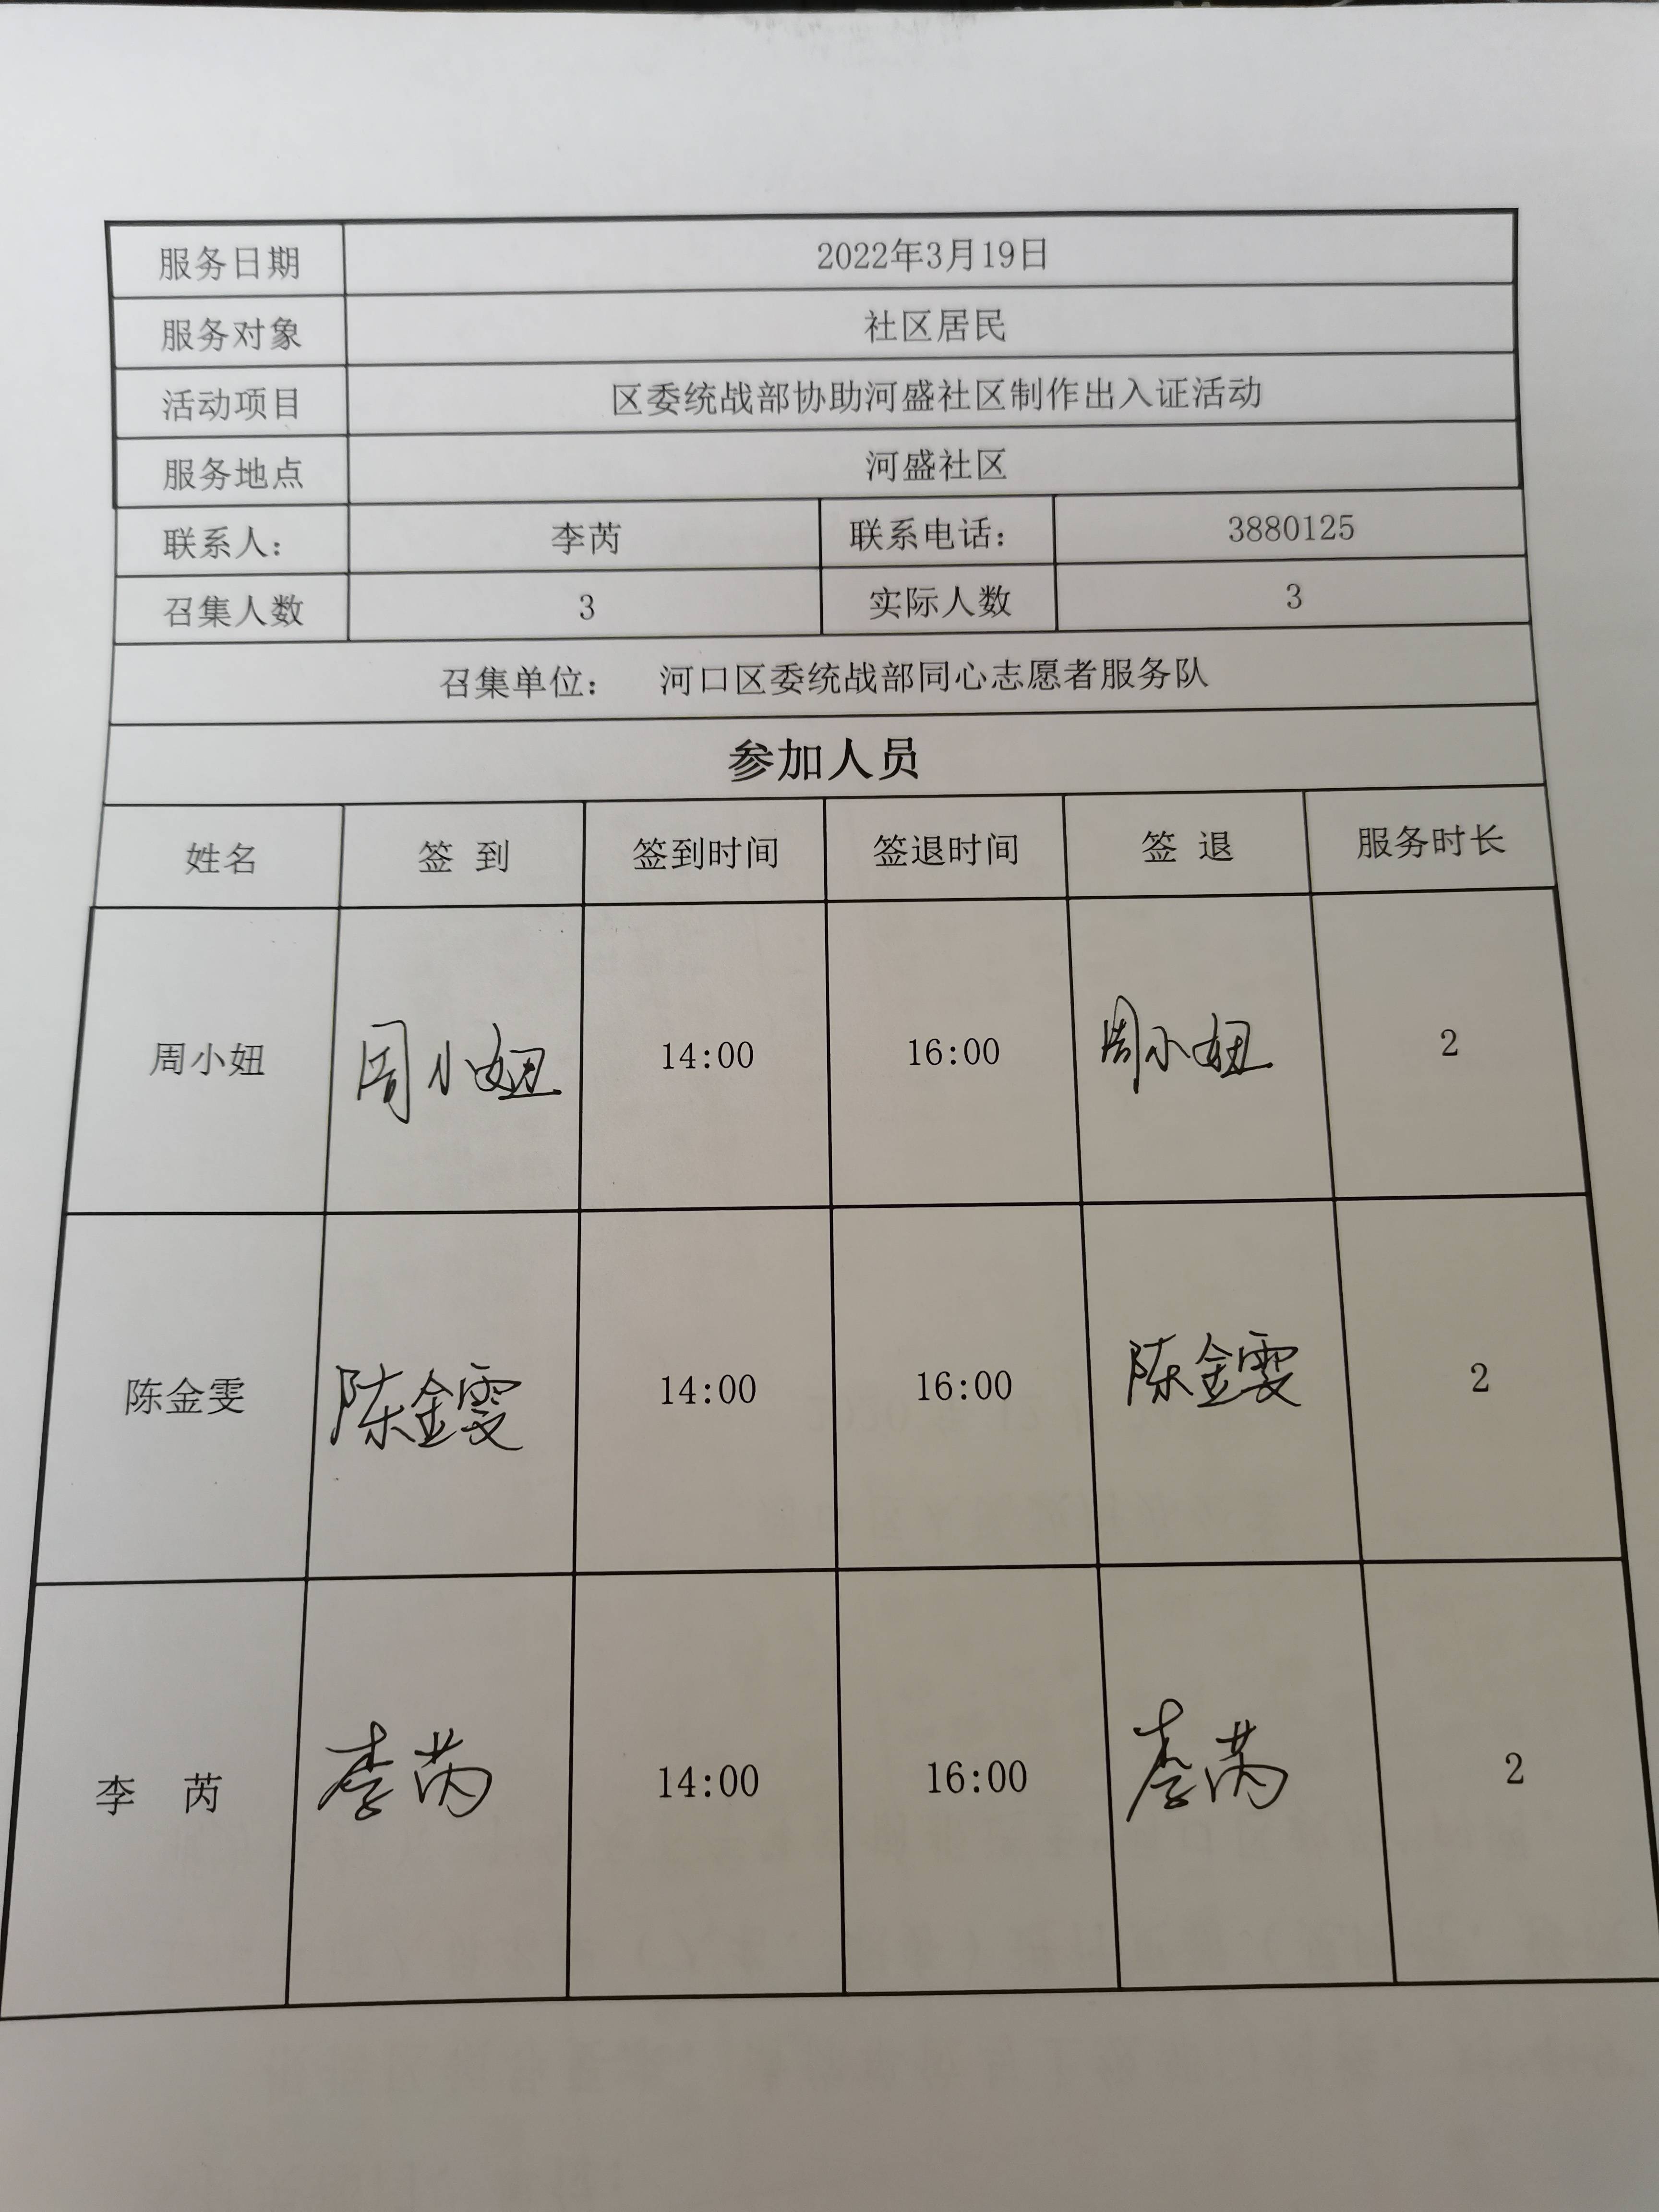 服务日期 2022年3月19日
服务对象 社区居民
活动项目 区委统战部协助河盛社区制作出入证活动
服务地点 河盛社区
联系人： 李芮 联系电话： 3880125
召集人数 3 实际人数 3
召集单位： 河口区委统战部同心志愿者服务队
参加人员
姓名 签 到 签到时间 签退时间 签 退 服务时长
周小妞 周小妞 14:00 16:00 周小妞 2
陈金雯 陈金雯 14:00 16:00 陈金雯 2
李 芮 李芮 14:00 16:00 李芮 2